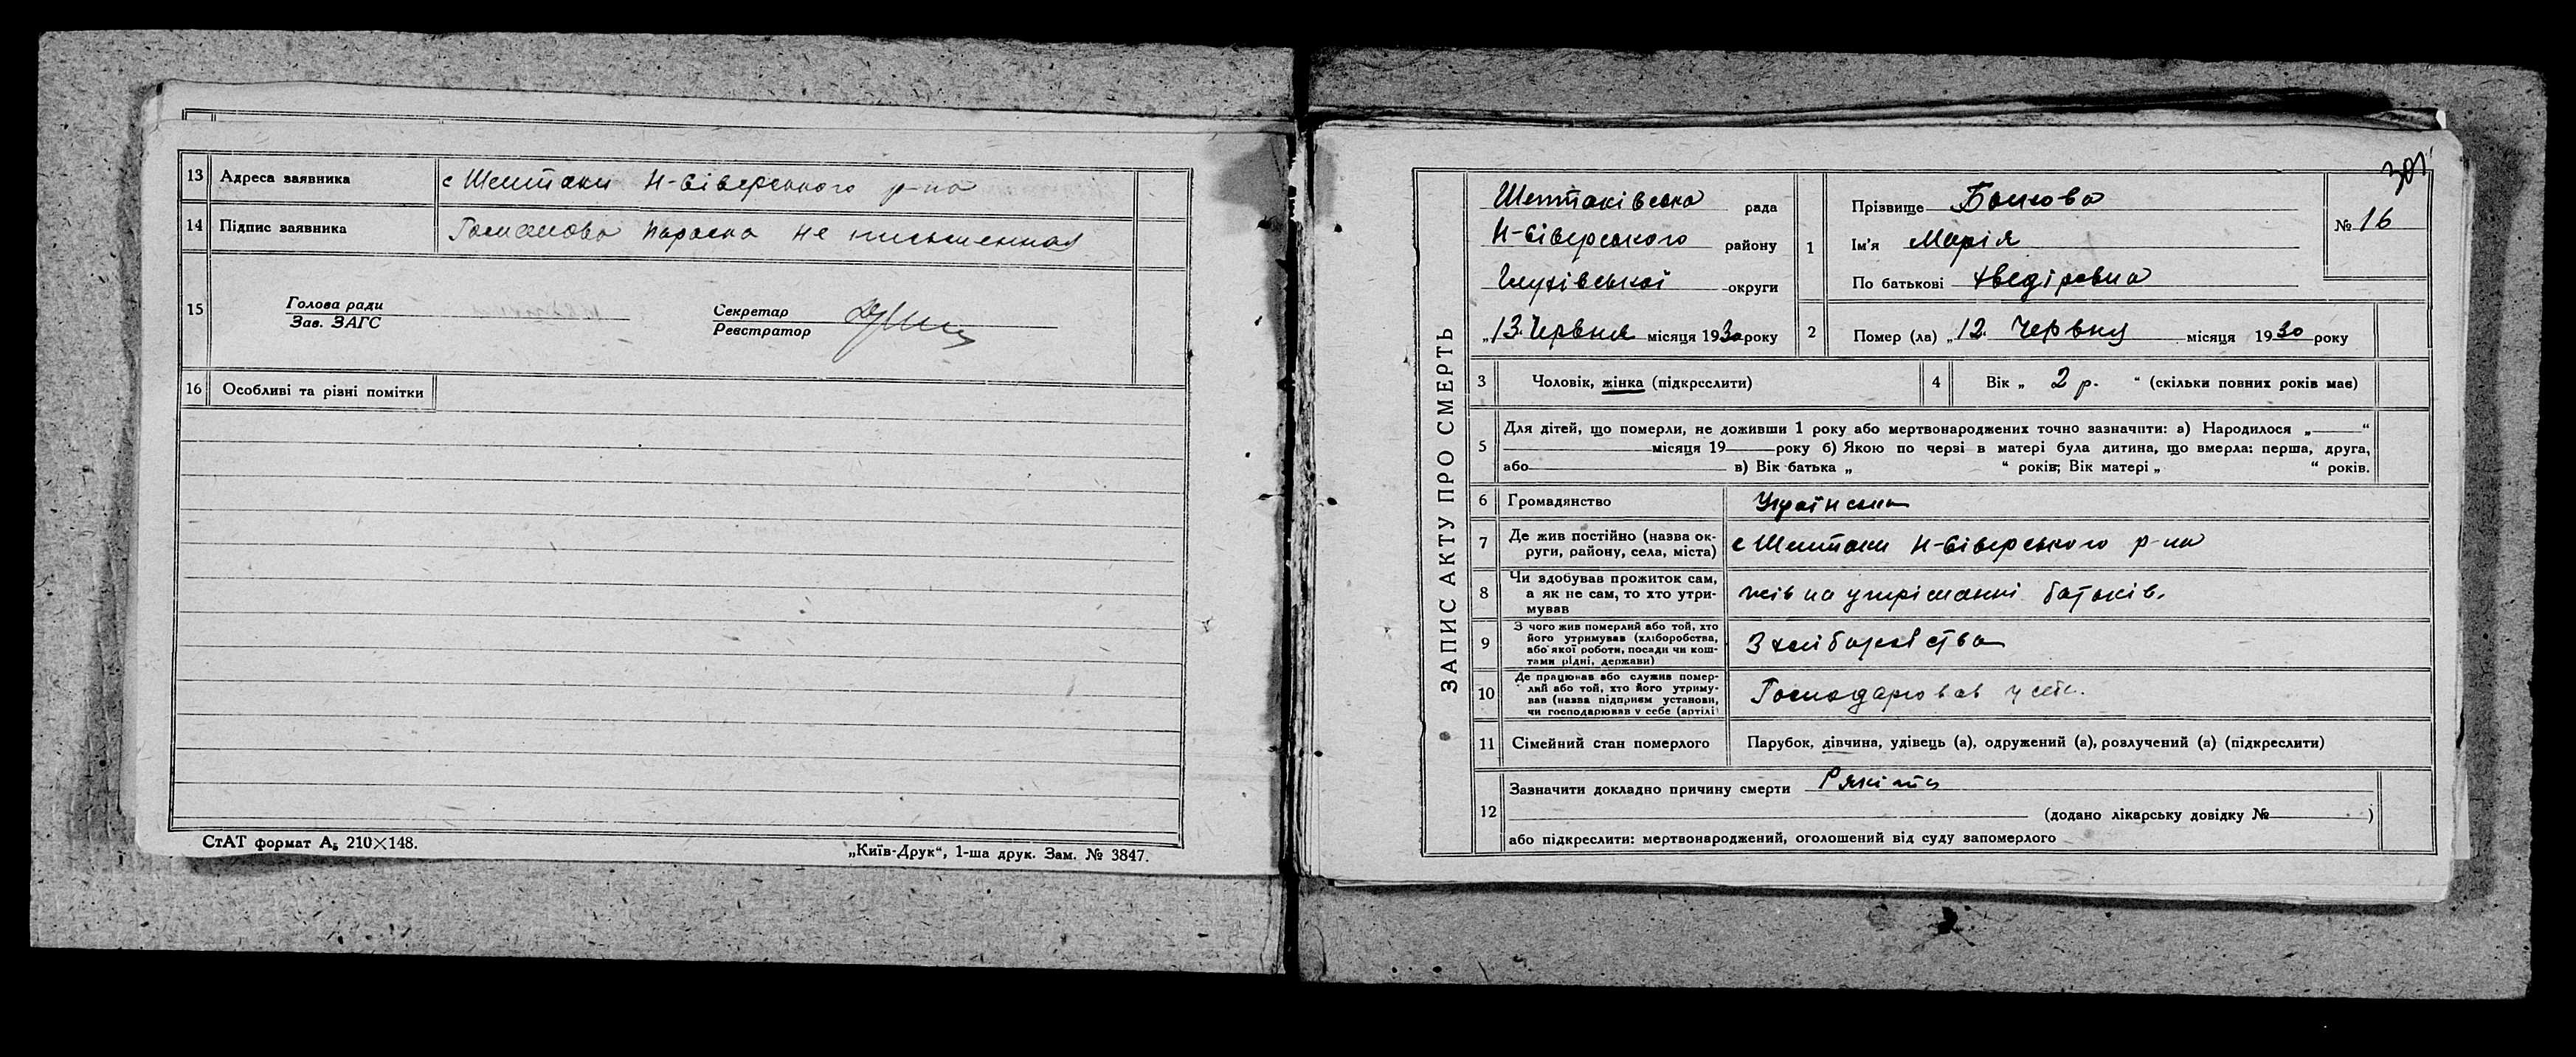 13 Адреса заявника с Шептаки Н-Сіверського р-на
14 Підпис заявника Параска не письменная
15 Голова ради
Зав. ЗАГС
Секретар
Реєстратор
16 Особливі та різні помітки
СтАТ формат А₅ 210×148.
„Київ-Друк“, 1-ша друк. Зам. № 3847.
301
ЗАПИС АКТУ ПРО СМЕРТЬ
Шептаківська рада
Н-Сіверського району
Глухівської округи
„13 Червня місяця 1930 року
1 Прізвище
Ім’я Марія
По батькові Хведіровна
№ 16
2 Помер (ла) „12 Червня місяця 1930 року
3 Чоловік, жінка (підкреслити)
4 Вік „ 2 р. “ (скільки повних років мав)
5 Для дітей, що померли, не доживши 1 року або мертвонароджених точно зазначити: а) Народилося „ “
місяця 19 року б) Якою по черзі в матері була дитина, що вмерла: перша, друга,
або в) Вік батька „ “ років; Вік матері „ “ років.
6 Громадянство Українська
7 Де жив постійно (назва ок-
руги, району, села, міста) с Шептаки Н-Сіверського р-на
8 Чи здобував прожиток сам,
а як не сам, то хто утри-
мував
жів на утріманні батьків.
9 З чого жив померлий або той, хто
його утримував (хліборобства,
або якої роботи, посади чи кош-
тами рідні, держави)
З хліборобства
10 Де працював або служив помер-
лий або той, хто його утриму-
вав (назва підприєм установи,
чи господарював у себе (артілі)
Господарював у себе.
11 Сімейний стан померлого Парубок, дівчина, удівець (а), одружений (а), розлучений (а) (підкреслити)
12 Зазначити докладно причину смерти
(додано лікарську довідку № )
або підкреслити: мертвонароджений, оголошений від суду запомерлого